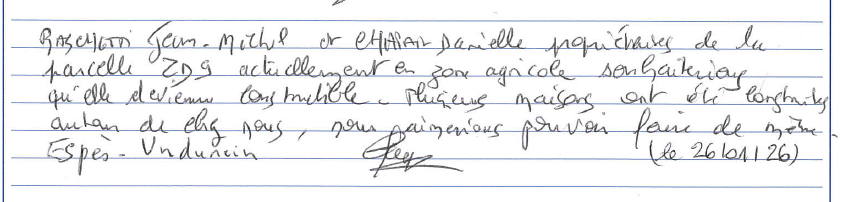 Jean-Michel et Danielle propriétaires de la
parcelle ZD9 actuellement en zone agricole souhaiterions
qu'elle devienne constructible. Plusieurs maisons ont été construites
autour de chez nous, nous aimerions pouvoir faire de même.
Espès-Undurein (le 26/01/26)